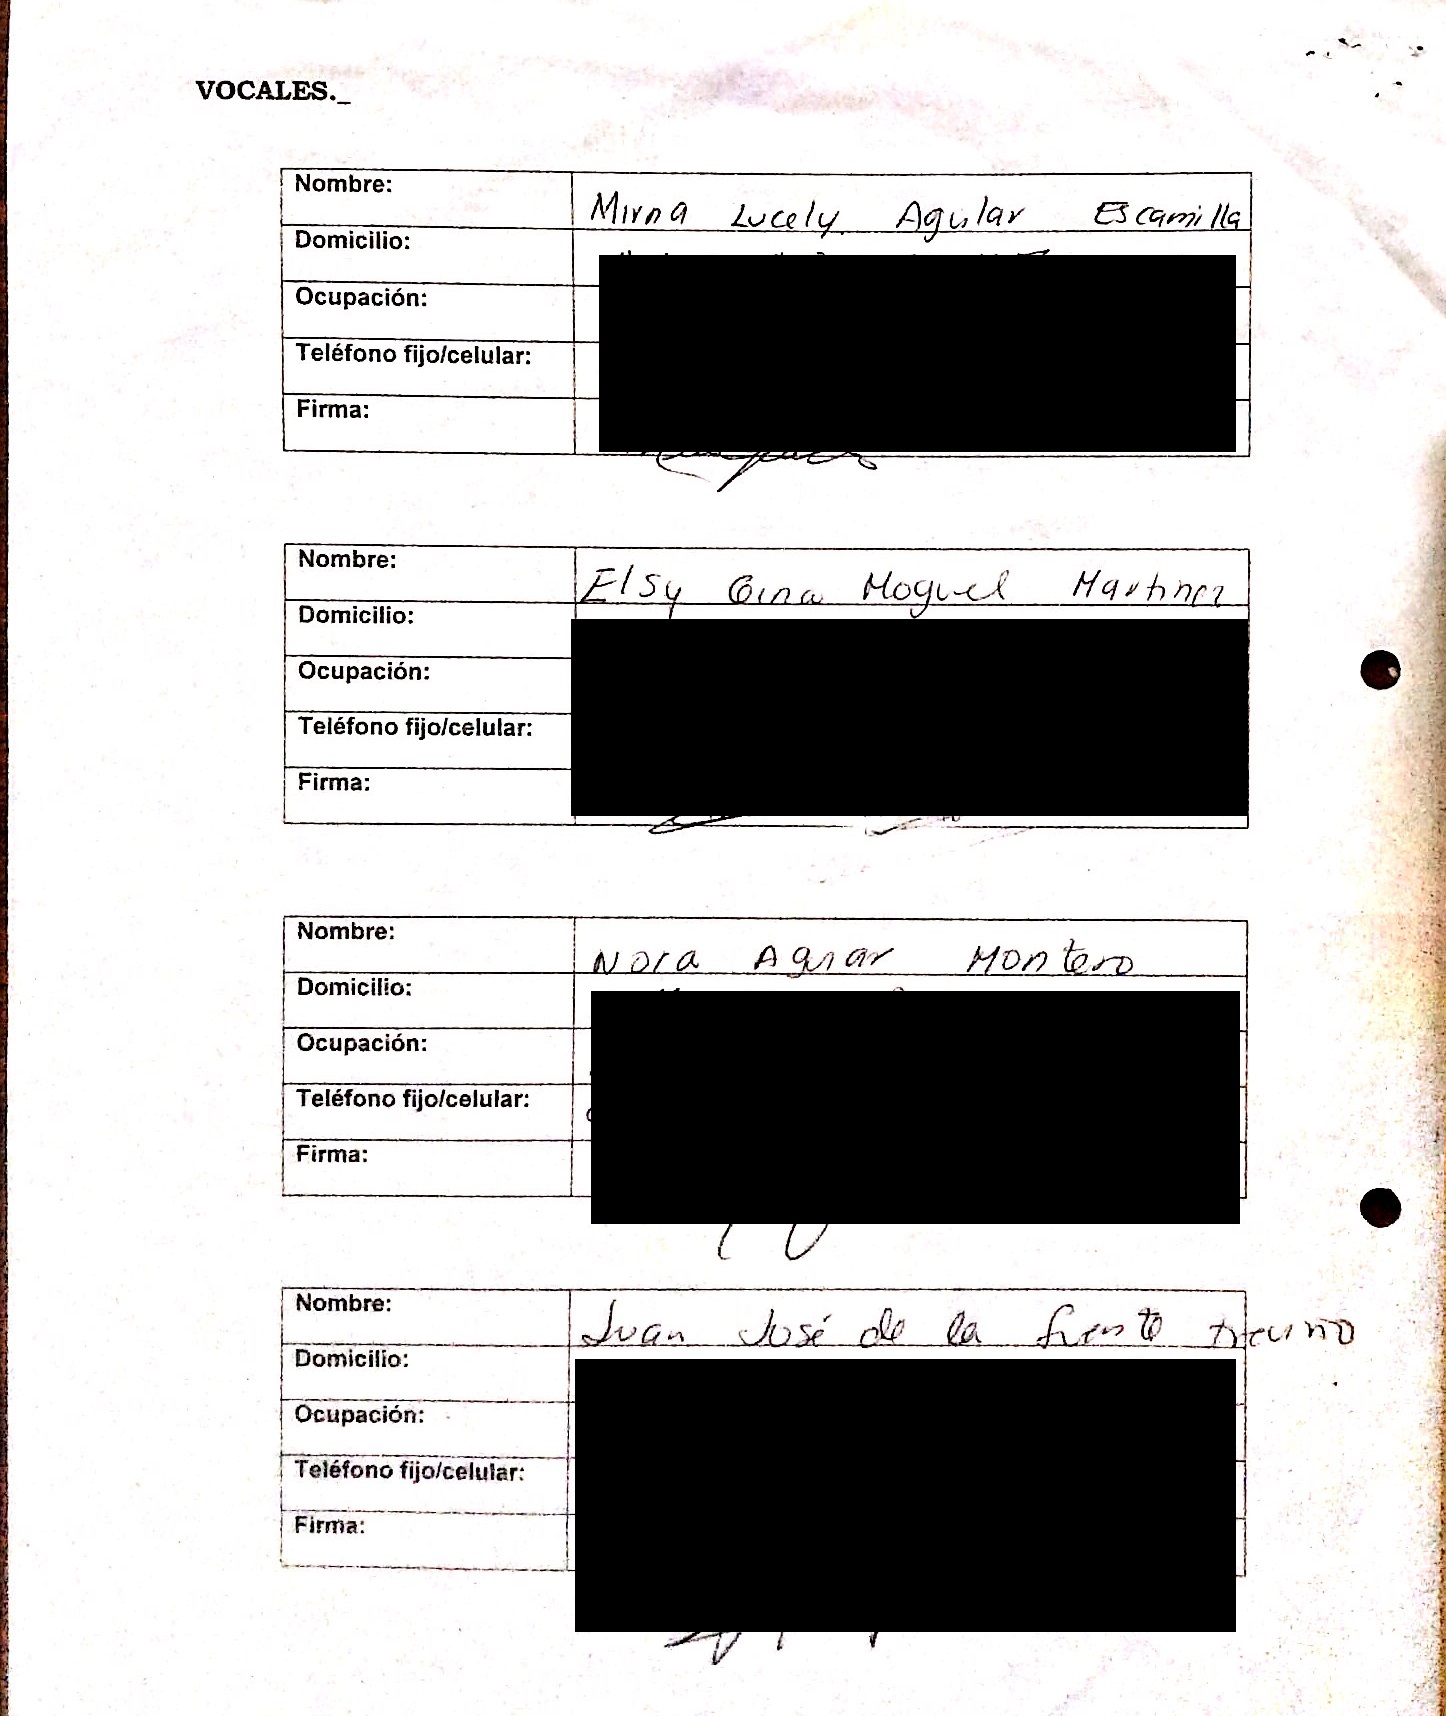 VOCALES._
Nombre: Mirna Lucely Aguilar Escamilla
Domicilio:
Ocupación:
Teléfono fijo/celular:
Firma:
Nombre: Elsy Gina Moguel Martinez
Domicilio:
Ocupación:
Teléfono fijo/celular:
Firma:
Nombre: Nora Aguiar Montero
Domicilio:
Ocupación:
Teléfono fijo/celular:
Firma:
Nombre: Juan José de la fuente
Domicilio:
Ocupación:
Teléfono fijo/celular:
Firma: